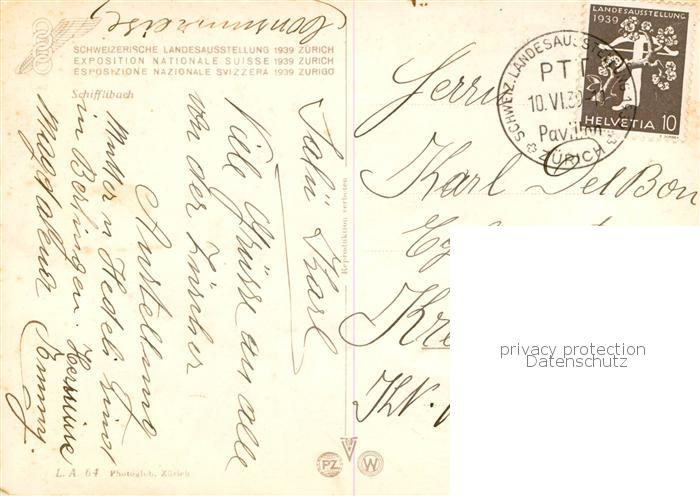 SCHWEIZERISCHE LANDESAUSSTELLUNG 1939 ZÜRICH
EXPOSITION NATIONALE SUISSE 1939 ZURICH
ESPOSIZIONE NAZIONALE SVIZZERA 1939 ZURIGO
Schifflibach
Salü Karl
Viele Grüsse an alle
von der Zürcher
Austellung
Mutter u Hedeli sind
in Berlingen. Hermine
Magdalena Emmy.
Reproduktion verboten
L. A. 64 Photoglob, Zürich
PZ W
LANDESAUSSTELLUNG
1939
HELVETIA 10
SCHWEIZ. LANDESAUSSTELLUNG
PTT
10.VI.39
Pavillon
ZÜRICH
Herrn
Karl DelBon
privacy protection
Datenschutz